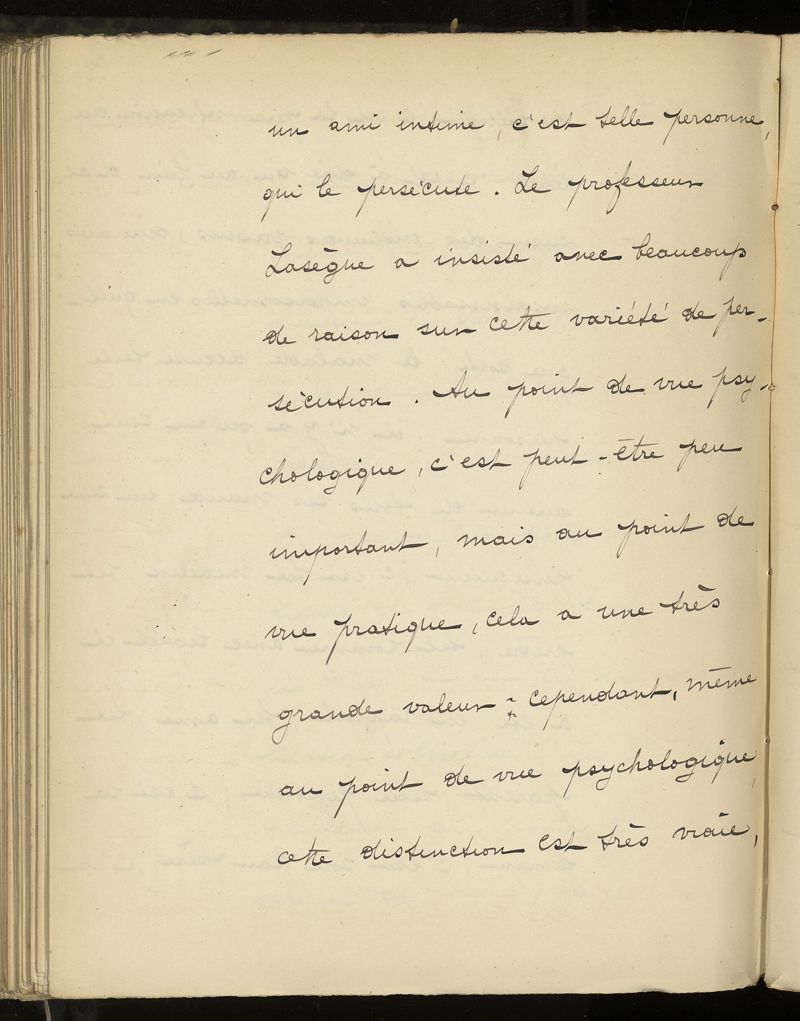 un ami intime, c'est telle personne,
qui le persécute. Le professeur
Lasègue a insisté avec beaucoup
de raison sur cette variété de per-
sécution. Au point de vue psy-
chologique, c'est peut-être peu
important, mais au point de
vue pratique, cela a une très
grande valeur; cependant, même
au point de vue psychologique,
cette distinction est très vraie,